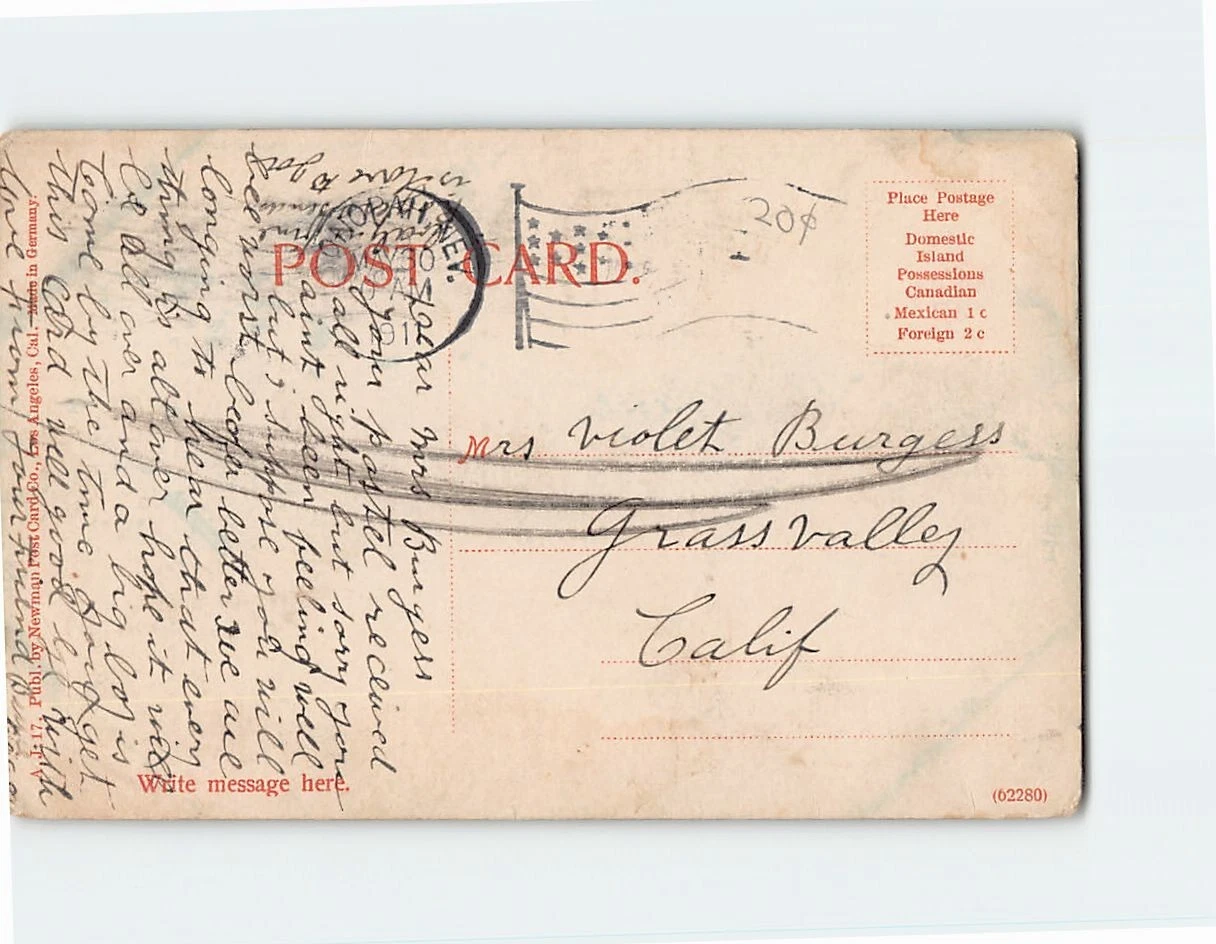 POST CARD.
Place Postage
Here
Domestic
Island
Possessions
Canadian
Mexican 1 c
Foreign 2 c
20¢
NEV.
Mrs Violet Burgess
Grass Valley
Calif
Dear Mrs Burgess
your postel received
all right but sorry you
aint been feeling well
but i suppose you will
be better
longing to hear that every
thing is all over hope it will
be all over and a big boy is
come by the time you get
this Card well good by with
love from your friend
is love to
Write message here.
A J: 17. Publ. by Newman Post Card Co., Los Angeles, Cal. Made in Germany.
(62280)